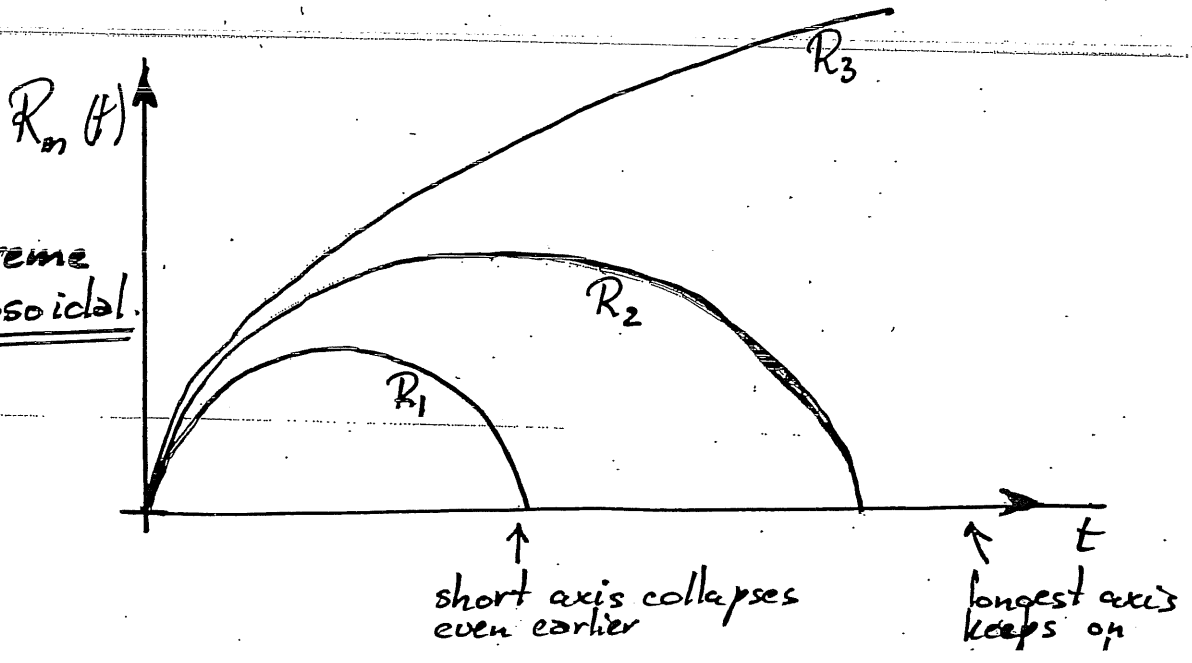 R₃
Rₘ (t)
reme
soidal.
R₂
R₁
t
short axis collapses
even earlier
longest axis
keeps on